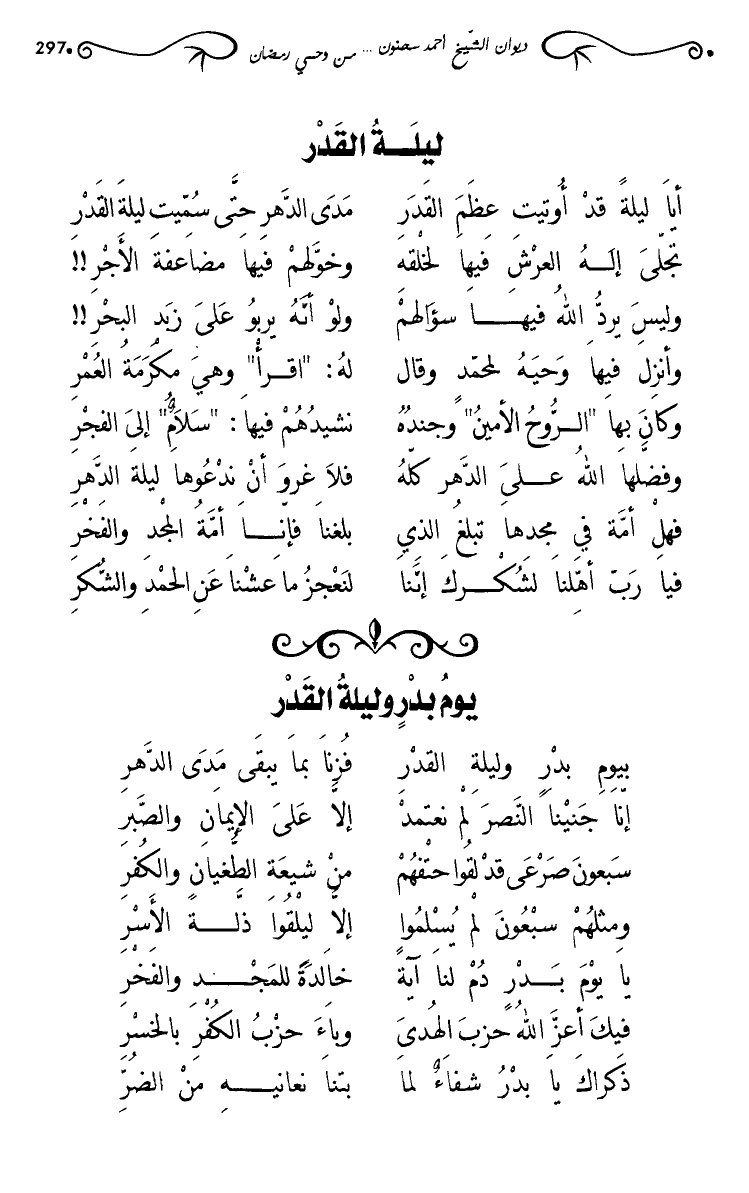 ديوان الشّيخ أحمد سحنون ... من وحي رمضان 297
ليلَـــةُ القَدْر
أيَا ليلةً قدْ أُوتيت عِظَمَ القَدَر مَدَى الدَّهرِ حتَّى سُمّيتِ ليلةَ القَدْرِ
تجَلَّىَ إلَــهُ العرْشِ فيها لخلْقه وخوَّلهمْ فيها مضاعفةَ الأَجْرِ!!
وليسَ يردُّ اللهُ فيهـــــا سؤَالهمْ ولوْ أنَّهُ يربُو عَلىَ زبَد البحْرِ!!
وأنزل فيها وَحيَهُ لمحمّد وقال لهُ: "اقــرأْ" وهيَ مكْرَمَةُ العُمْرِ
وكانَ بها "الــرُّوحُ الأمينُ" وجندُهُ نشيدُهُمْ فيها: "سَلاَمٌ" إلىَ الفجْرِ
وفضَّلها اللهُ عـــلىَ الدَّهر كلِّهُ فلاَ غروَ أنْ ندْعُوها ليلة الدَّهرِ
فهلْ أمّة في مجدها تبلغُ الذي بلغنا فإنَّـــا أمَّةُ المجْد والفخْرِ
فيا ربّ أهّلنا لشُكْــــرك إنَّنا لنَعْجزُ ما عشْنا عَن الحمْد والشُّكرِ
يومُ بدْرٍ وليلةُ القَدْر
بيومِ بدْرٍ وليلةِ القدْرِ فُزنَا بماَ يبقَى مَدَى الدَّهرِ
إنّا جَنيْنا النَّصرَ لمْ نعتمدْ إلاَّ عَلىَ الإيمان والصَّبرِ
سَبعونَ صَرْعَى قدْ لقُوا حتْفهُمْ منْ شيعَة الطُّغيان والكُفْرِ
ومثلهُمْ سبْعُونَ لمْ يُسْلمُوا إلاَّ ليلْقُوا ذلَّــــةَ الأَسْرِ
يا يوْمَ بَـــدْرٍ دُمْ لنا آيةً خالدةً للمَجْـــــد والفخْرِ
فيكَ أعزَّ اللهُ حزبَ الهُدىَ وباءَ حزْبُ الكُفْر بالخُسْرِ
ذكراكَ يا بدْرُ شفاءٌ لما بتنا نعانيـــــه منْ الضرِّ